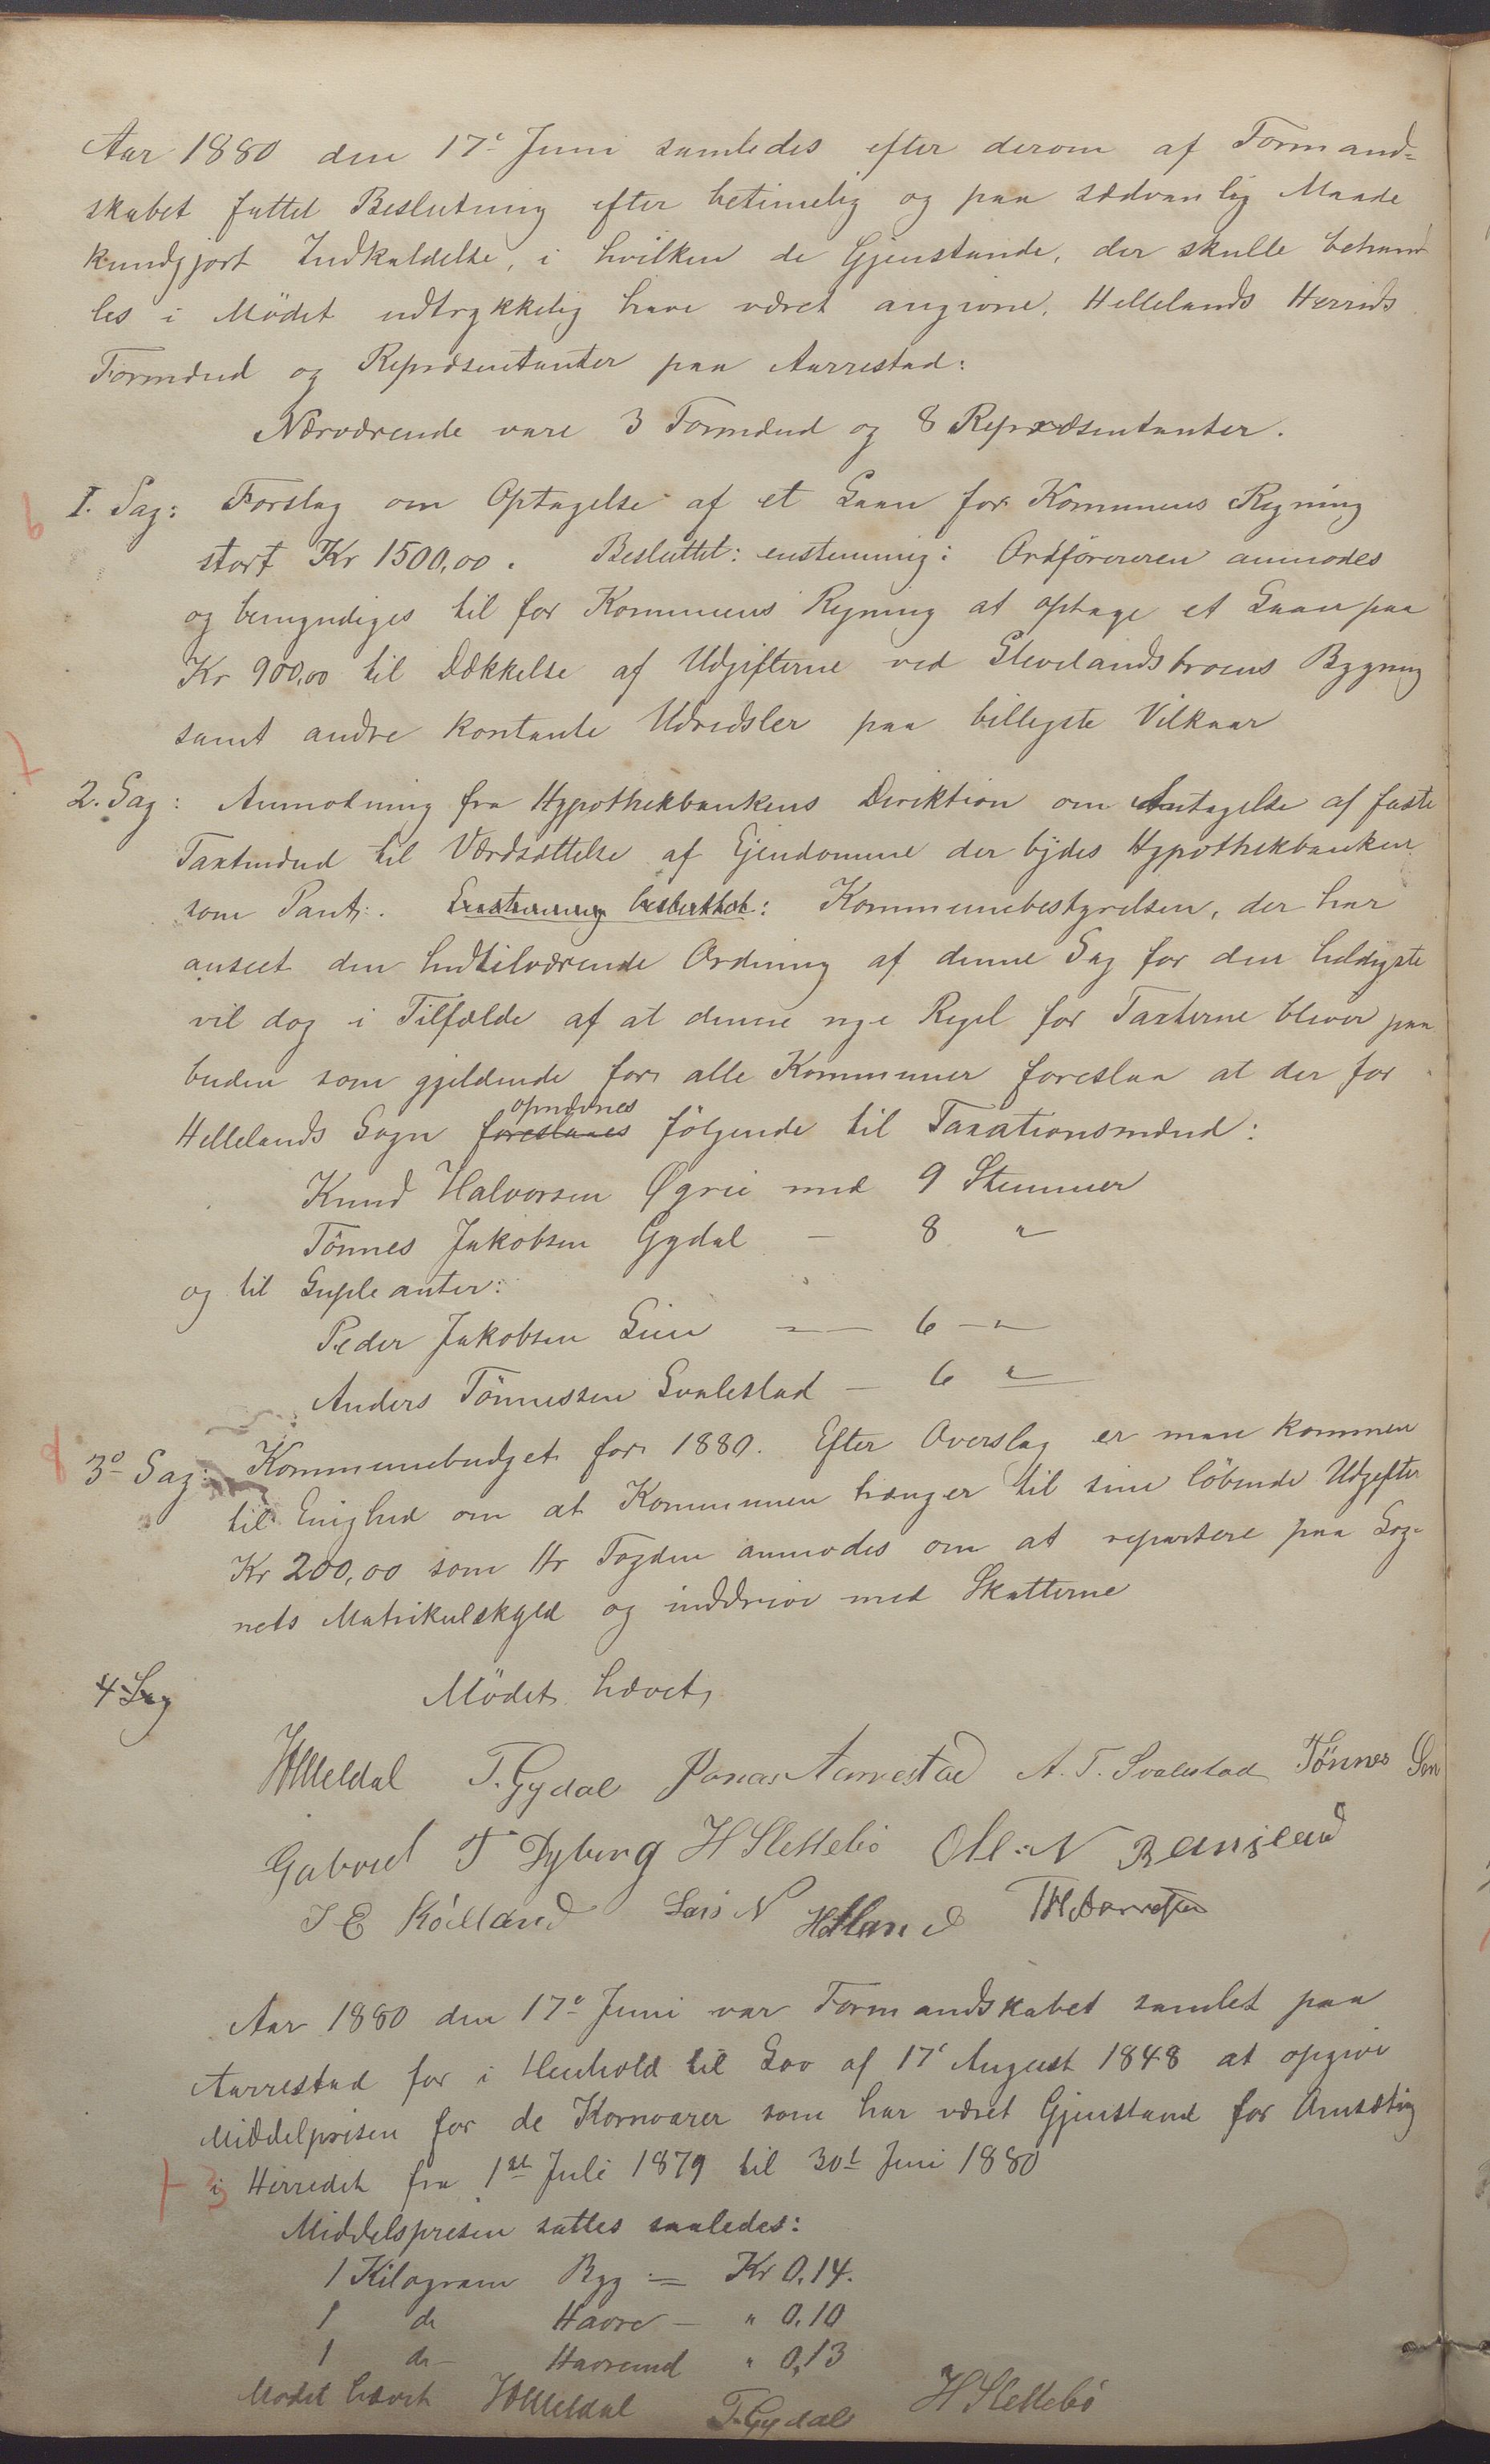 Aar 1880 den 17e Juni samledes efter derom af Formand-
skabet fattet Beslutning efter betimelig og paa sædvanlig Maade
kundgjort Indkaldelse, i hvilken de Gjenstande, der skulle behand
les i Mødet udtrykkelig have været angivne, Hellelands Herreds
Formænd og Repræsentanter paa Aarrestad:
Nærværende vare 3 Formænd og 8 Repræsentanter.
6 I. Sag: Forslag om Optagelse af et Laan for Kommunens Regning
stort Kr 1500,00. Besluttet: enstemmig: Ordføreren anmodes
og bemyndiges til for Kommunens Regning at optage et Laan paa
Kr 900,00 til Dækkelse af Udgifterne ved Slevelandsbroens Bygning
samt andre kontante Udredsler paa billigste Vilkaar
7
2. Sag: Anmodning fra Hypothekbankens Direktion om Antagelse af faste
Taxtmænd til Værdsættelse af Ejendomme der bydes Hypothekbanken
som Pant. Enstemmig besluttet: Kommunebestyrelsen, der har
anseet den hidtilværende Ordning af denne Sag for den heldigste
vil dog i Tilfælde af at denne nye Regel for Taxterne bliver paa
buden som gjeldende for alle Kommuner foreslaa at der for
opnævnes
Hellelands Sogn foreslaaes følgende til Taxationsmænd:
Knud Halvorsen Øgreie med 9 Stemmer
Tönnes Jakobsen Gydal — 8 "
og til Supleanter:
Peder Jakobsen Lien — 6 — "
Anders Tönnessen Svalestad — 6 "
8 3o Sag: Kommunebudget for 1880. Efter Overslag er man kommen
til Enighed om at Kommunen trænger til sine löbende Udgifter
Kr 200,00 som Hr Fogden anmodes om at repartere paa Sog-
nets Matrikulskyld og inddrive med Skatterne
4 Sag
Mödet hævet,
Meldal T. Gydal Jonas Aarrestad A. T. Svalestad Tönnes
Gabriel T Dybing H Slettebö Ole N Bjansland
T E Róilland Lars N Helland TH Aarrestad
Aar 1880 den 17e Juni var Formandskabet samlet paa
Aarrestad for i Henhold til Lov af 17e August 1848 at opgive
Middelprisen for de Kornvarer som har været Gjenstand for Omsætning
+ 3 i Herredet fra 1st Juli 1879 til 30t Juni 1880
Middelsprisen sattes saaledes:
1 Kilogram Byg = Kr 0.14.
1 do Havre — " 0.10
1 do Havremel " 0,13
Mödet hævet Meldal T. Gydal H Slettebö